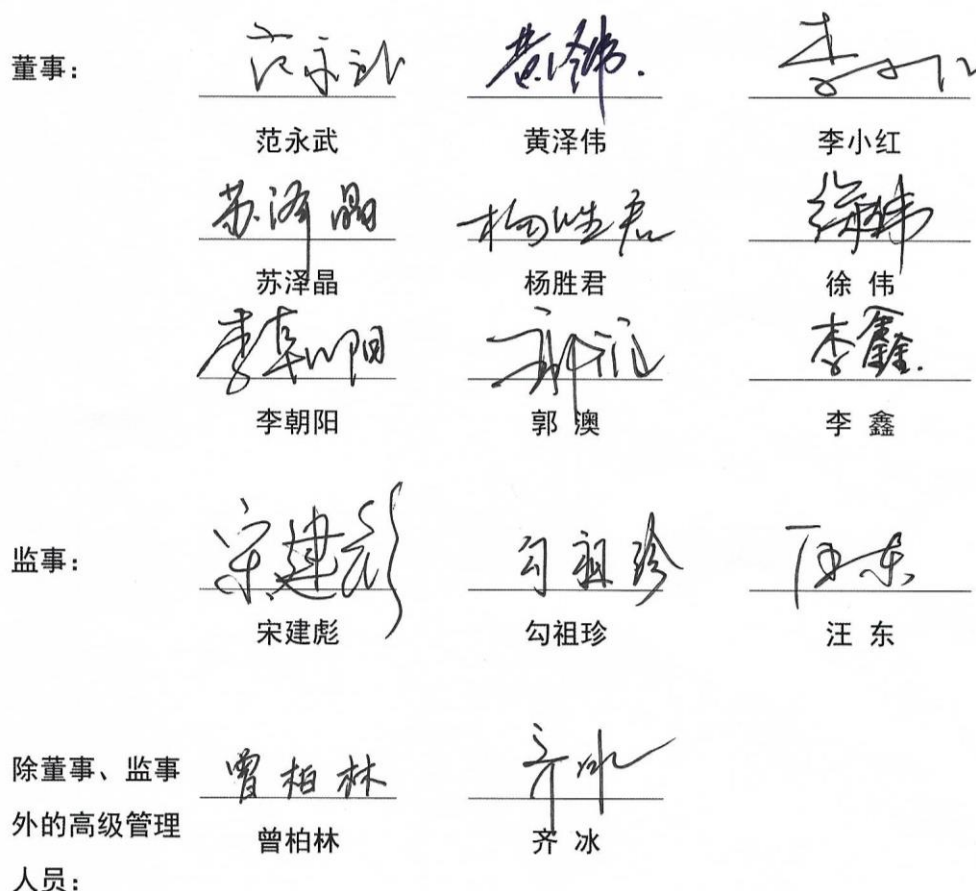 董事： 范永武 黄泽伟 李小红
范永武 黄泽伟 李小红
苏泽晶 杨胜君 徐伟
苏泽晶 杨胜君 徐 伟
李朝阳 郭澳 李鑫
李朝阳 郭 澳 李 鑫
监事： 宋建彪 勾祖珍 汪东
宋建彪 勾祖珍 汪 东
除董事、监事 曾柏林 齐冰
外的高级管理 曾柏林 齐 冰
人员：